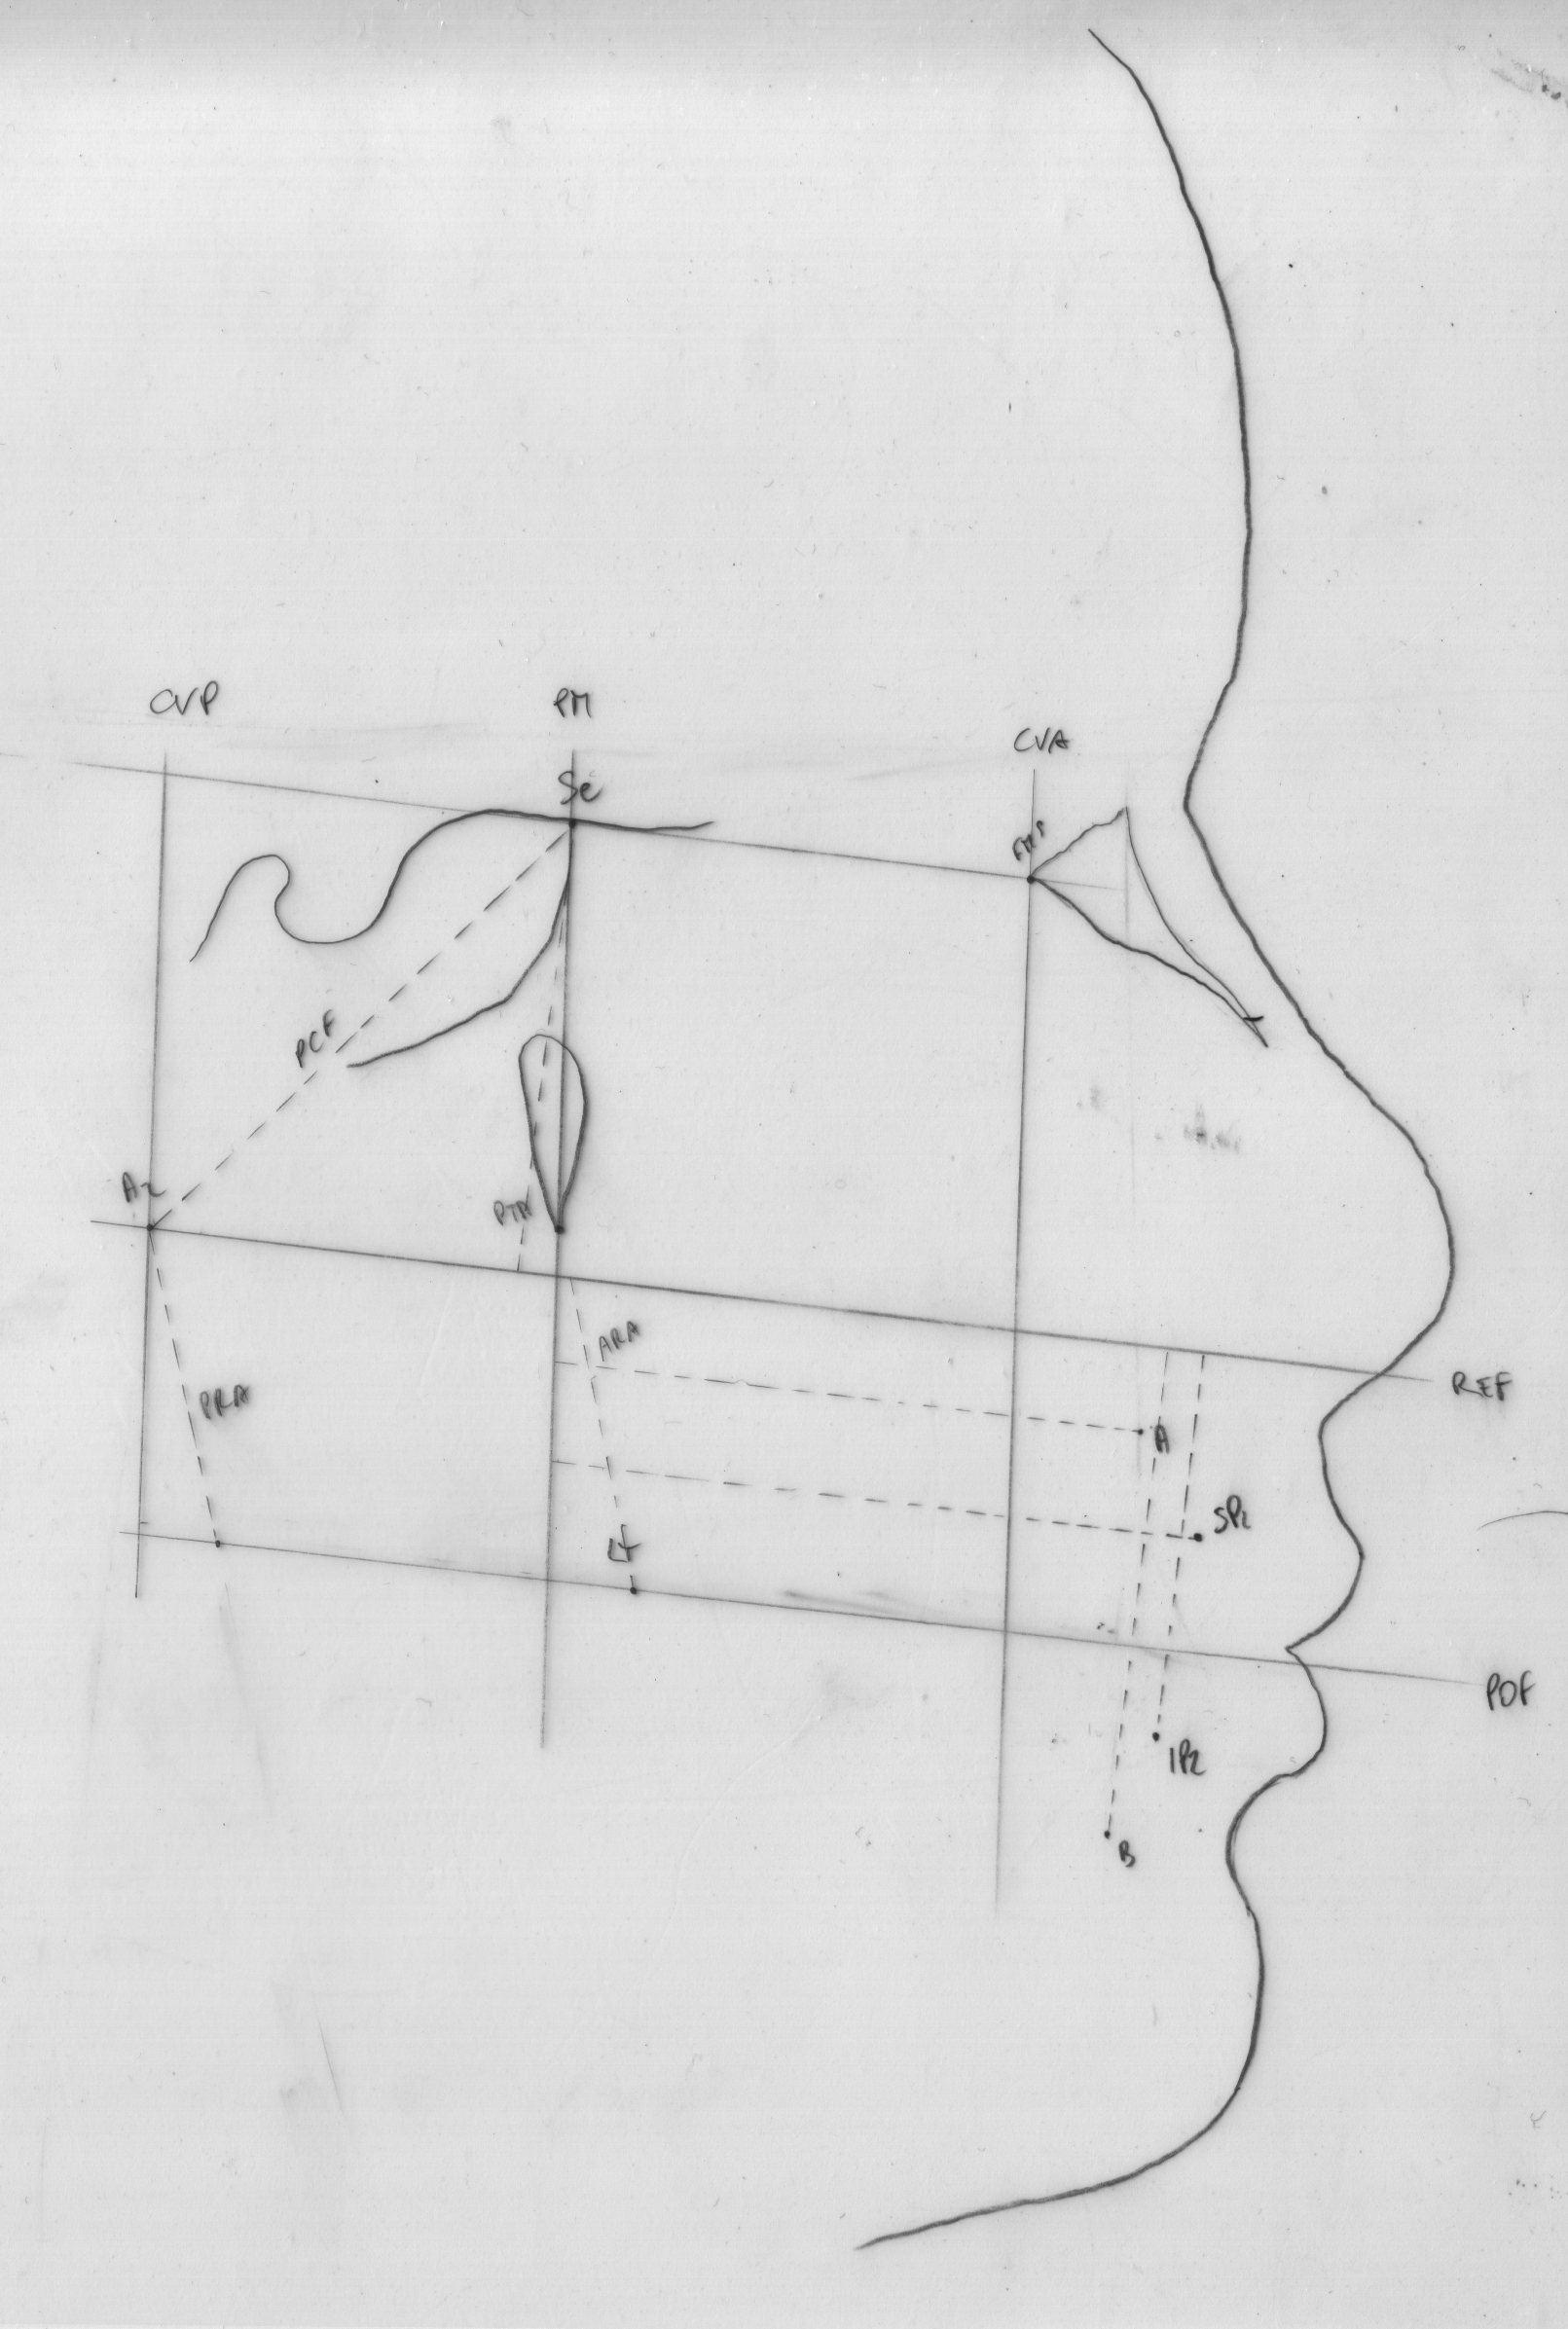 CVP
PM
CVA
Se
FMS
PCF
Ar
PTM
ARA
PRA
REF
A
SPr
POF
IPr
B